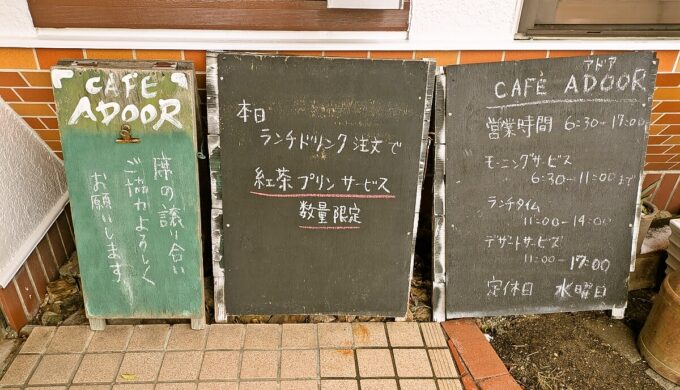 CAFE
ADOOR
席の譲り合い
ご協力よろしく
お願いします
本日
ランチドリンク注文で
紅茶プリンサービス
数量限定
アドア
CAFÉ ADOOR
営業時間 6:30-17:00
モーニングサービス
6:30-11:00まで
ランチタイム
11:00-14:00
デザートサービス
11:00-17:00
定休日 水曜日